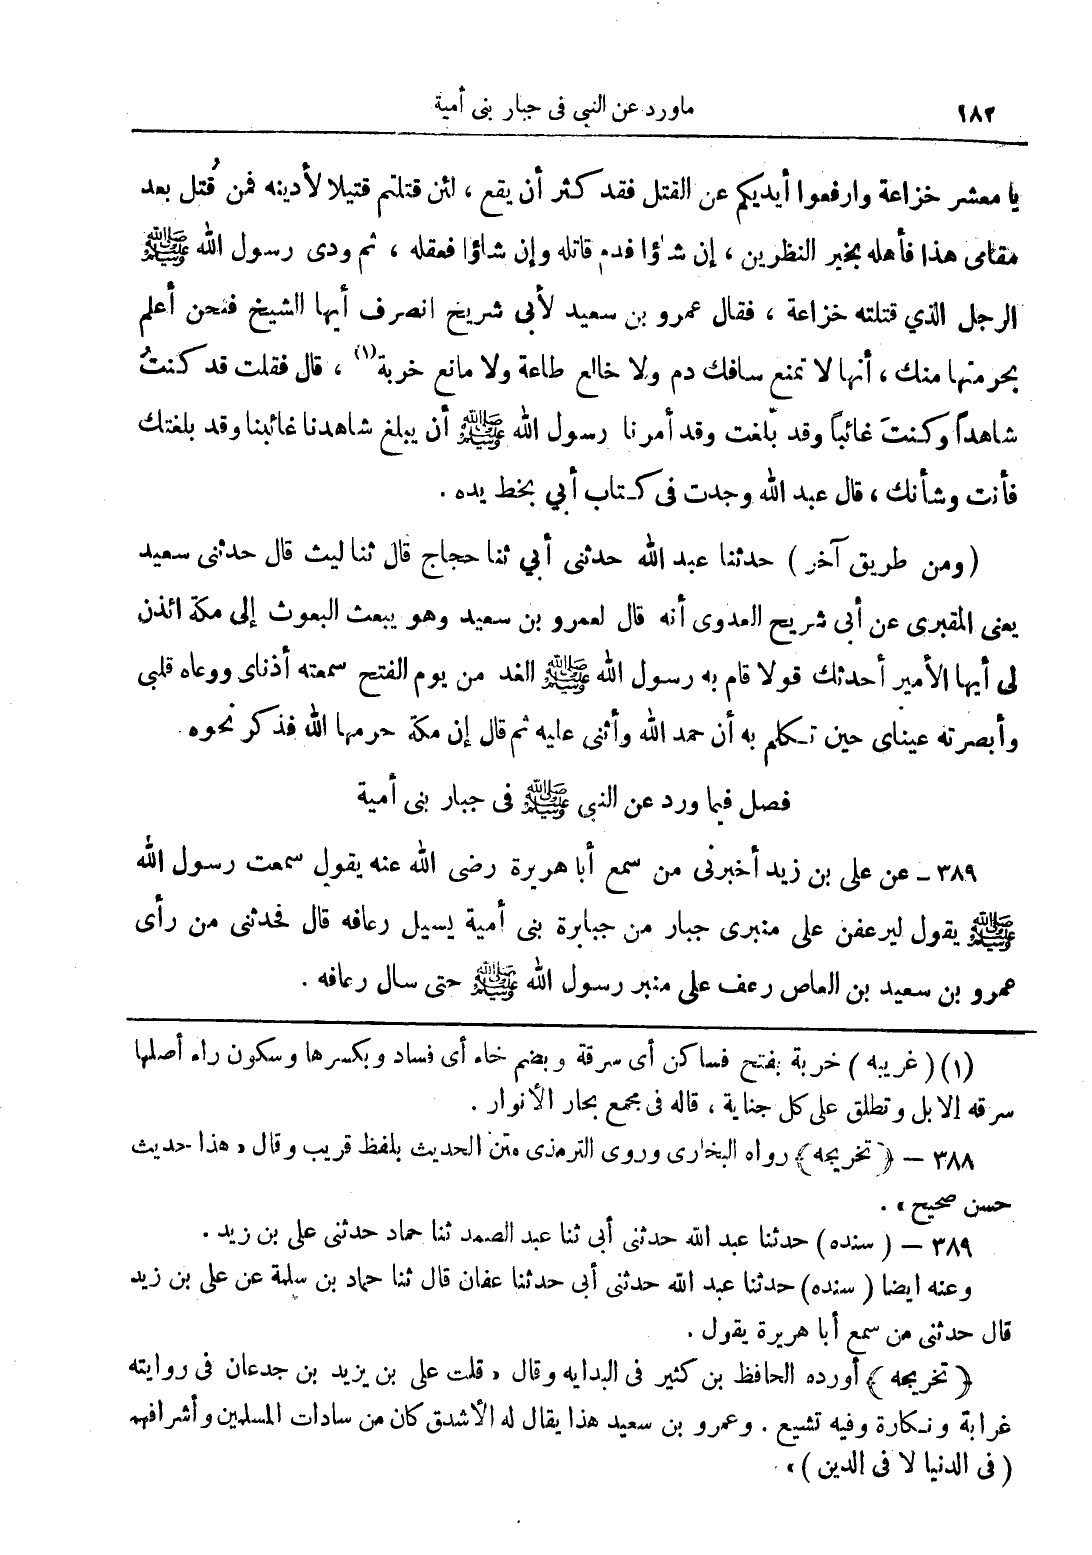 ١٨٢ ماورد عن النبى فى جبار بنى أمية
يا معشر خزاعة وارفعوا أيديكم عن القتل فقد كثر أن يقع ، لئن قتلتم قتيلا لأدينه فمن قُتل بعد
مقامى هذا فأهله بخير النظرين ، إن شاؤا فدم قاتله وإن شاؤا فعقله ، ثم ودى رسول الله ﷺ
الرجل الذي قتلته خزاعة ، فقال عمرو بن سعيد لأبى شريح انصرف أيها الشيخ فنحن أعلم
بحرمتها منك ، أنها لا تمنع سافك دم ولا خالع طاعة ولا مانع خربة (١) ، قال فقلت قد كنتُ
شاهداً وكنتَ غائباً وقد بلّغت وقد أمرنا رسول الله ﷺ أن يبلغ شاهدنا غائبنا وقد بلغتك
فأنت وشأنك ، قال عبد الله وجدت فى كتاب أبي بخط يده .
( ومن طريق آخر ) حدثنا عبد الله حدثنى أبي ثنا حجاج قال ثنا ليث قال حدثنى سعيد
يعنى المقبرى عن أبى شريح العدوى أنه قال لعمرو بن سعيد وهو يبعث البعوث إلى مكة ائذن
لى أيها الأمير أحدثك قولا قام به رسول الله ﷺ الغد من يوم الفتح سمعته أذناى ووعاه قلبى
وأبصرته عيناى حين تكلم به أن حمد الله وأثنى عليه ثم قال إن مكة حرمها الله فذكر نحوه .
فصل فيما ورد عن النبى ﷺ فى جبار بنى أمية
٣٨٩ ـ عن على بن زيد أخبرنى من سمع أبا هريرة رضى الله عنه يقول سمعت رسول الله
ﷺ يقول ليرعفن على منبرى جبار من جبابرة بنى أمية يسيل رعافه قال فحدثنى من رأى
عمرو بن سعيد بن العاص رعف على منبر رسول الله ﷺ حتى سال رعافه .
(١) ( غريبه ) خربة بفتح فساكن أى سرقة وبضم خاء أى فساد وبكسرها وسكون راء أصلها
سرقه الابل وتطلق على كل جناية ، قاله فى مجمع بحار الأنوار .
٣٨٨ — ﴿ تخريجه ﴾ رواه البخارى وروى الترمذى متن الحديث بلفظ قريب وقال « هذا حديث
حسن صحيح » .
٣٨٩ — ( سنده ) حدثنا عبد الله حدثنى أبى ثنا عبد الصمد ثنا حماد حدثنى على بن زيد .
وعنه ايضا ( سنده ) حدثنا عبد الله حدثنى أبى حدثنا عفان قال ثنا حماد بن سلمة عن على بن زيد
قال حدثنى من سمع أبا هريرة يقول .
﴿ تخريجه ﴾ أورده الحافظ بن كثير فى البدايه وقال « قلت على بن يزيد بن جدعان فى روايته
غرابة ونكارة وفيه تشيع . وعمرو بن سعيد هذا يقال له الأشدق كان من سادات المسلمين وأشرافهم
( فى الدنيا لا فى الدين ) » .